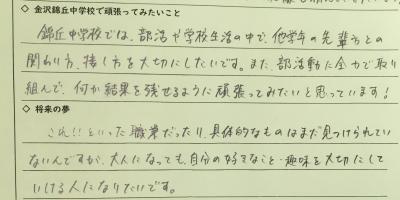 ◇ 金沢錦丘中学校で頑張ってみたいこと
錦丘中学校では、部活や学校生活の中で、他学年の先輩方との
関わり方、接し方を大切にしたいです。また、部活動に全力で取り
組んで、何か結果を残せるように頑張ってみたいと思っています!
◇ 将来の夢
これ!!といった職業だったり、具体的なものはまだ見つけられてい
ないんですが、大人になっても、自分の好きなこと・趣味を大切にして
いける人になりたいです。